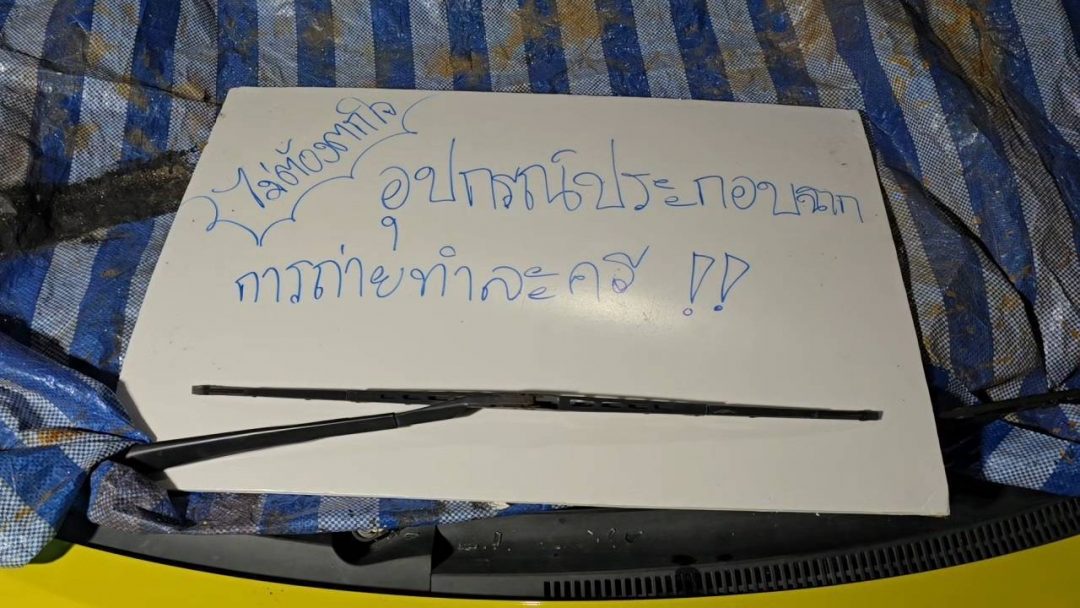 ไม่ต้องตกใจ
อุปกรณ์ประกอบฉาก
การถ่ายทำละคร !!